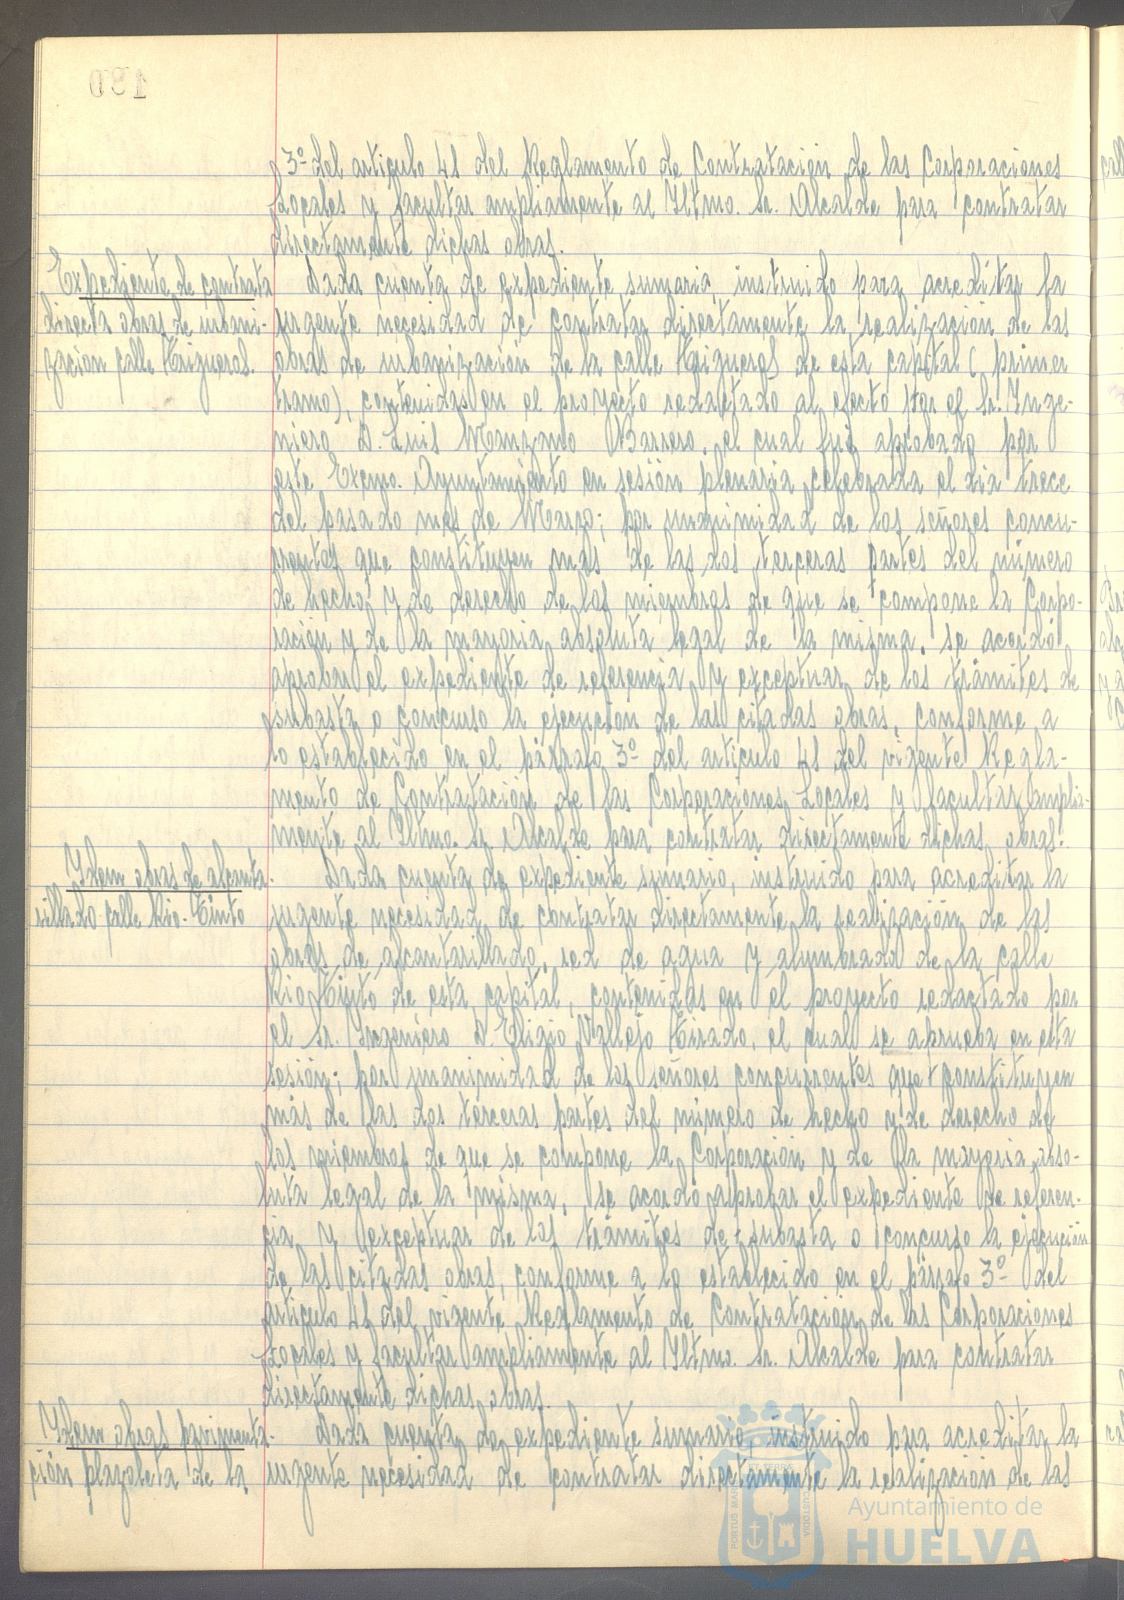 3º del articulo 41 del Reglamento de Contratación de las Corporaciones
Locales y facultar ampliamente al Iltmo. Sr. Alcalde para contratar
directamente dichas obras.
Expediente de contrata
directa obras de urbani-
zación calle Trigueros.
Dada cuenta de expediente sumario, instruido para acreditar la
urgente necesidad de contratar directamente la realización de las
obras de urbanización de la calle Trigueros de esta capital (primer
tramo), contenidas en el proyecto redactado al efecto por el Sr. Inge-
niero D. Luis Manzano Barrero, el cual fué aprobado por
este Excmo. Ayuntamiento en sesión plenaria celebrada el dia trece
del pasado mes de Marzo; por unanimidad de los señores concu-
rrentes que constituyen más de las dos terceras partes del número
de hecho y de derecho de los miembros de que se compone la Corpo-
ración y de la mayoria absoluta legal de la misma, se acordó
aprobar el expediente de referencia y exceptuar de los trámites de
subasta o concurso la ejecución de las citadas obras, conforme a
lo establecido en el párrafo 3º del articulo 41 del vigente Regla-
mento de Contratación de las Corporaciones Locales y facultar amplia-
mente al Iltmo. Sr. Alcalde para contratar directamente dichas obras.
Idem obras de alcanta-
rillado calle Rio-Tinto
Dada cuenta de expediente sumario, instruido para acreditar la
urgente necesidad de contratar directamente la realización de las
obras de alcantarillado, red de agua y alumbrado de la calle
Rio Tinto de esta capital, contenidas en el proyecto redactado por
el Sr. Ingeniero D. Eligio Vallejo Tirado, el cual se aprueba en esta
sesión; por unanimidad de los señores concurrentes que constituyen
más de las dos terceras partes del número de hecho y de derecho de
los miembros de que se compone la Corporación y de la mayoria abso-
luta legal de la misma, se acordó aprobar el expediente de referen-
cia y exceptuar de los trámites de subasta o concurso la ejecución
de las citadas obras, conforme a lo establecido en el párrafo 3º del
articulo 41 del vigente Reglamento de Contratación de las Corporaciones
Locales y facultar ampliamente al Iltmo. Sr. Alcalde para contratar
directamente dichas obras.
Idem obras pavimenta-
ción plazoleta de la
Dada cuenta de expediente sumario, instruido para acreditar la
urgente necesidad de contratar directamente la realización de las
Ayuntamiento de
HUELVA